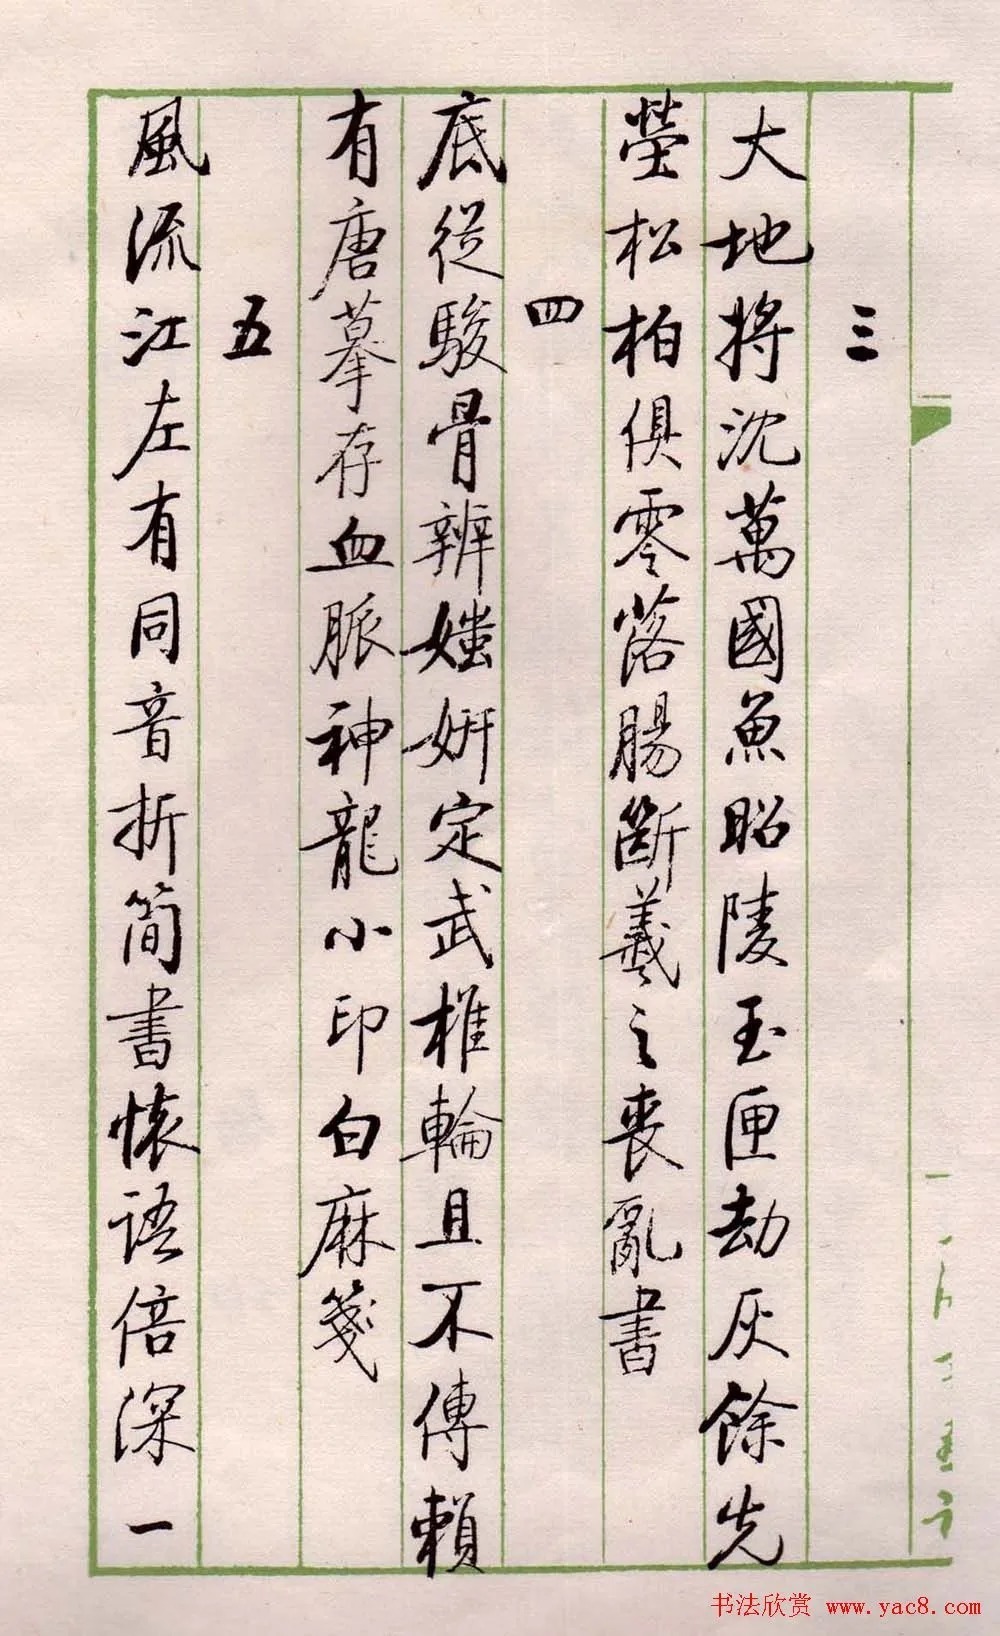 三
大地將沈萬國魚昭陵玉匣劫灰餘先
塋松柏俱零落腸斷羲之喪亂書
四
底從駿骨辨媸妍定武椎輪且不傳賴
有唐摹存血脈神龍小印白麻箋
五
風流江左有同音折簡書懷語倍深一
书法欣赏 www.yac8.com